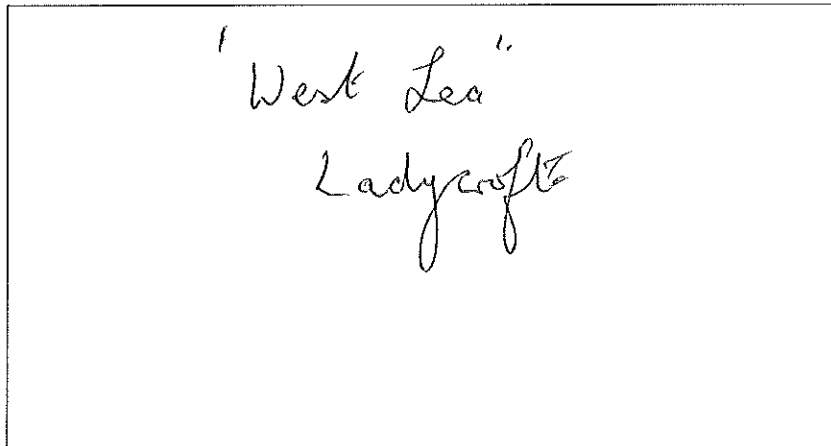 "West Lea"
Ladycroft